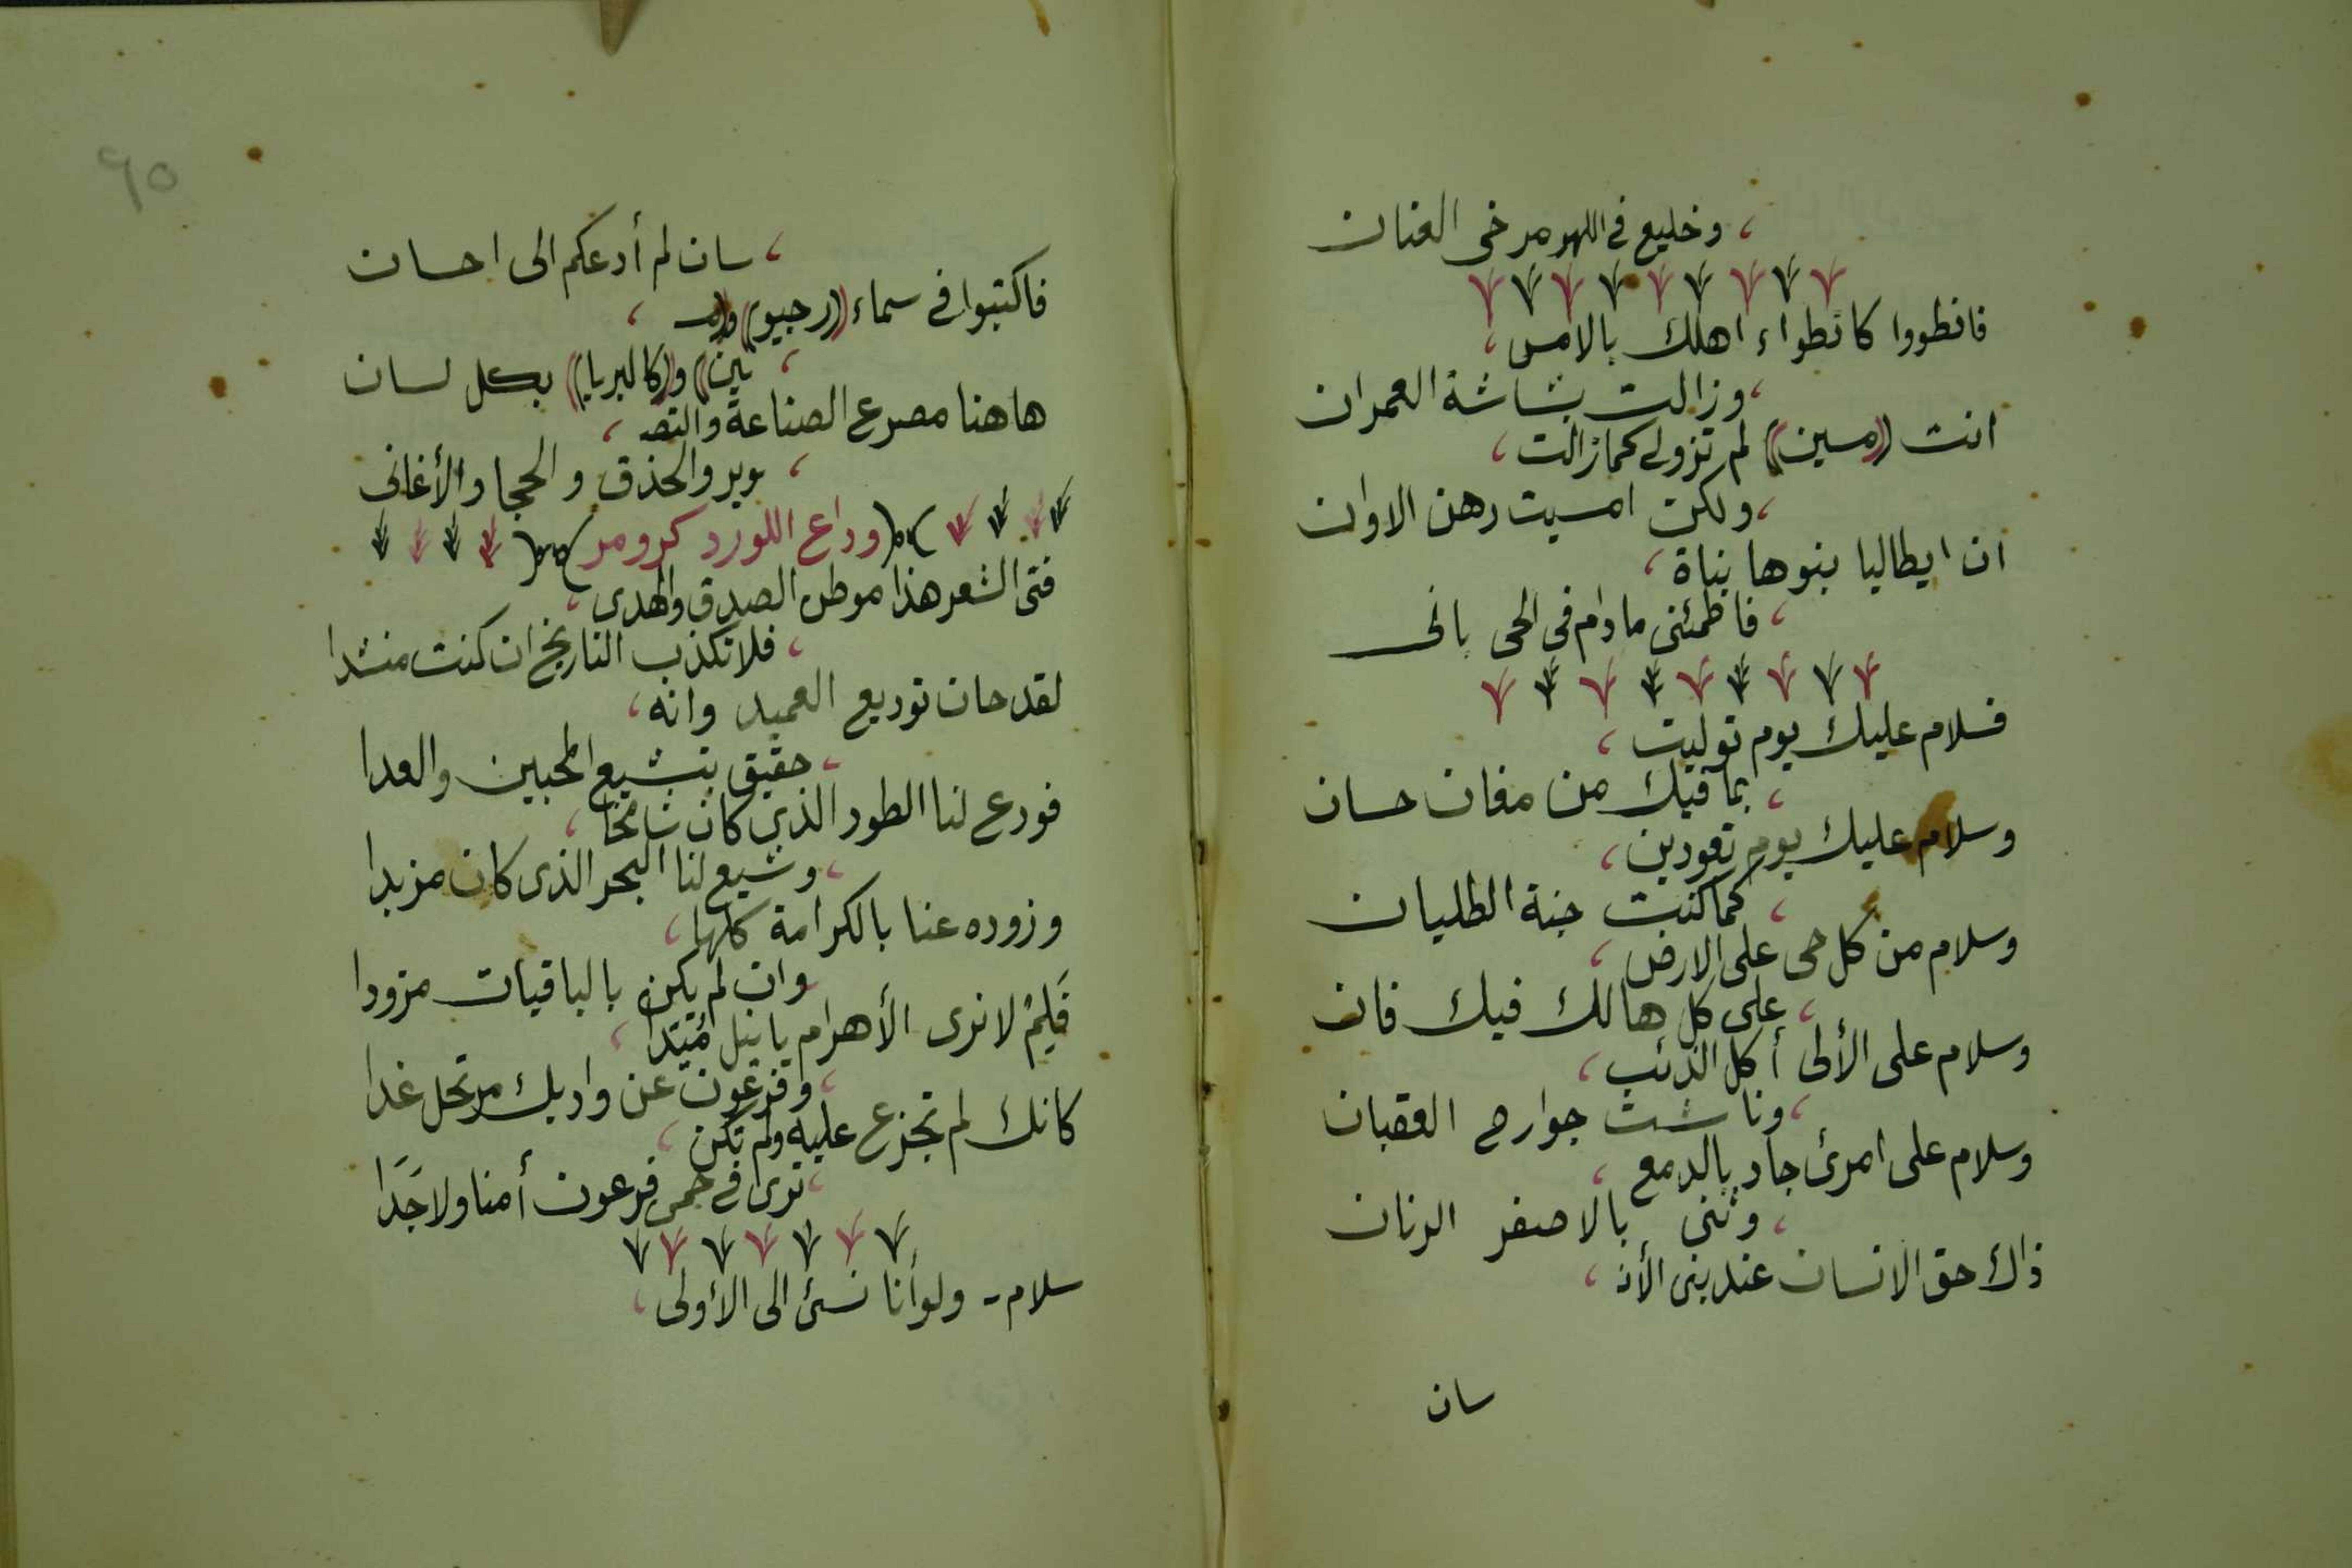 وخليع في اللهو مرخى العنان
فانطووا كانطواء اهلك بالامس،
وزالت بشاشة العمران
انت ((مسين)) لم تزولى كما زالت،
ولكن امسيت رهن الاوان
ان ايطاليا بنوها بناة،
فاطمئنى ما دام فى الحى بانى
فسلام عليك يوم توليت،
بما فيك من مغان حسان
وسلام عليك يوم تعودين،
كما كنت جنة الطليان
وسلام من كل حى على الارض،
على كل هالك فيك فان
وسلام على الألى أكل الذئب،
وناشت جوارح العقبان
وسلام على امرئ جاد بالدمع،
وثنى بالاصفر الرنان
ذاك حق الانسان عند بنى الأنـ،
سان
٩٥
سان لم أدعكم الى احسان
فاكتبوا فى سماء ((رجيو)) و((مسـ،
ين)) و((كالبريا)) بكل لسان
هاهنا مصرع الصناعة والتصـ،
وير والحذق والحجا والأغانى
وداع اللورد كرومر
فتى الشعر هذا موطن الصدق والهدى،
فلا تكذب التاريخ ان كنت منشدا
لقد حان توديع العميد وانه،
حقيق بتشييع المحبين والعدا
فودع لنا الطود الذى كان شامخا،
وشيع لنا البحر الذى كان مزبدا
وزوده عنا بالكرامة كلها،
وان لم يكن بالباقيات مزودا
فَلِمْ لا نرى الأهرام يا نيل مُيَّدا،
وفرعون عن واديك مرتحل غدا
كانك لم تجزع عليه ولم تكن،
ترى فى حمى فرعون أمنا ولا جَدَا
سلام - ولو أنا نسئ الى الأولى،